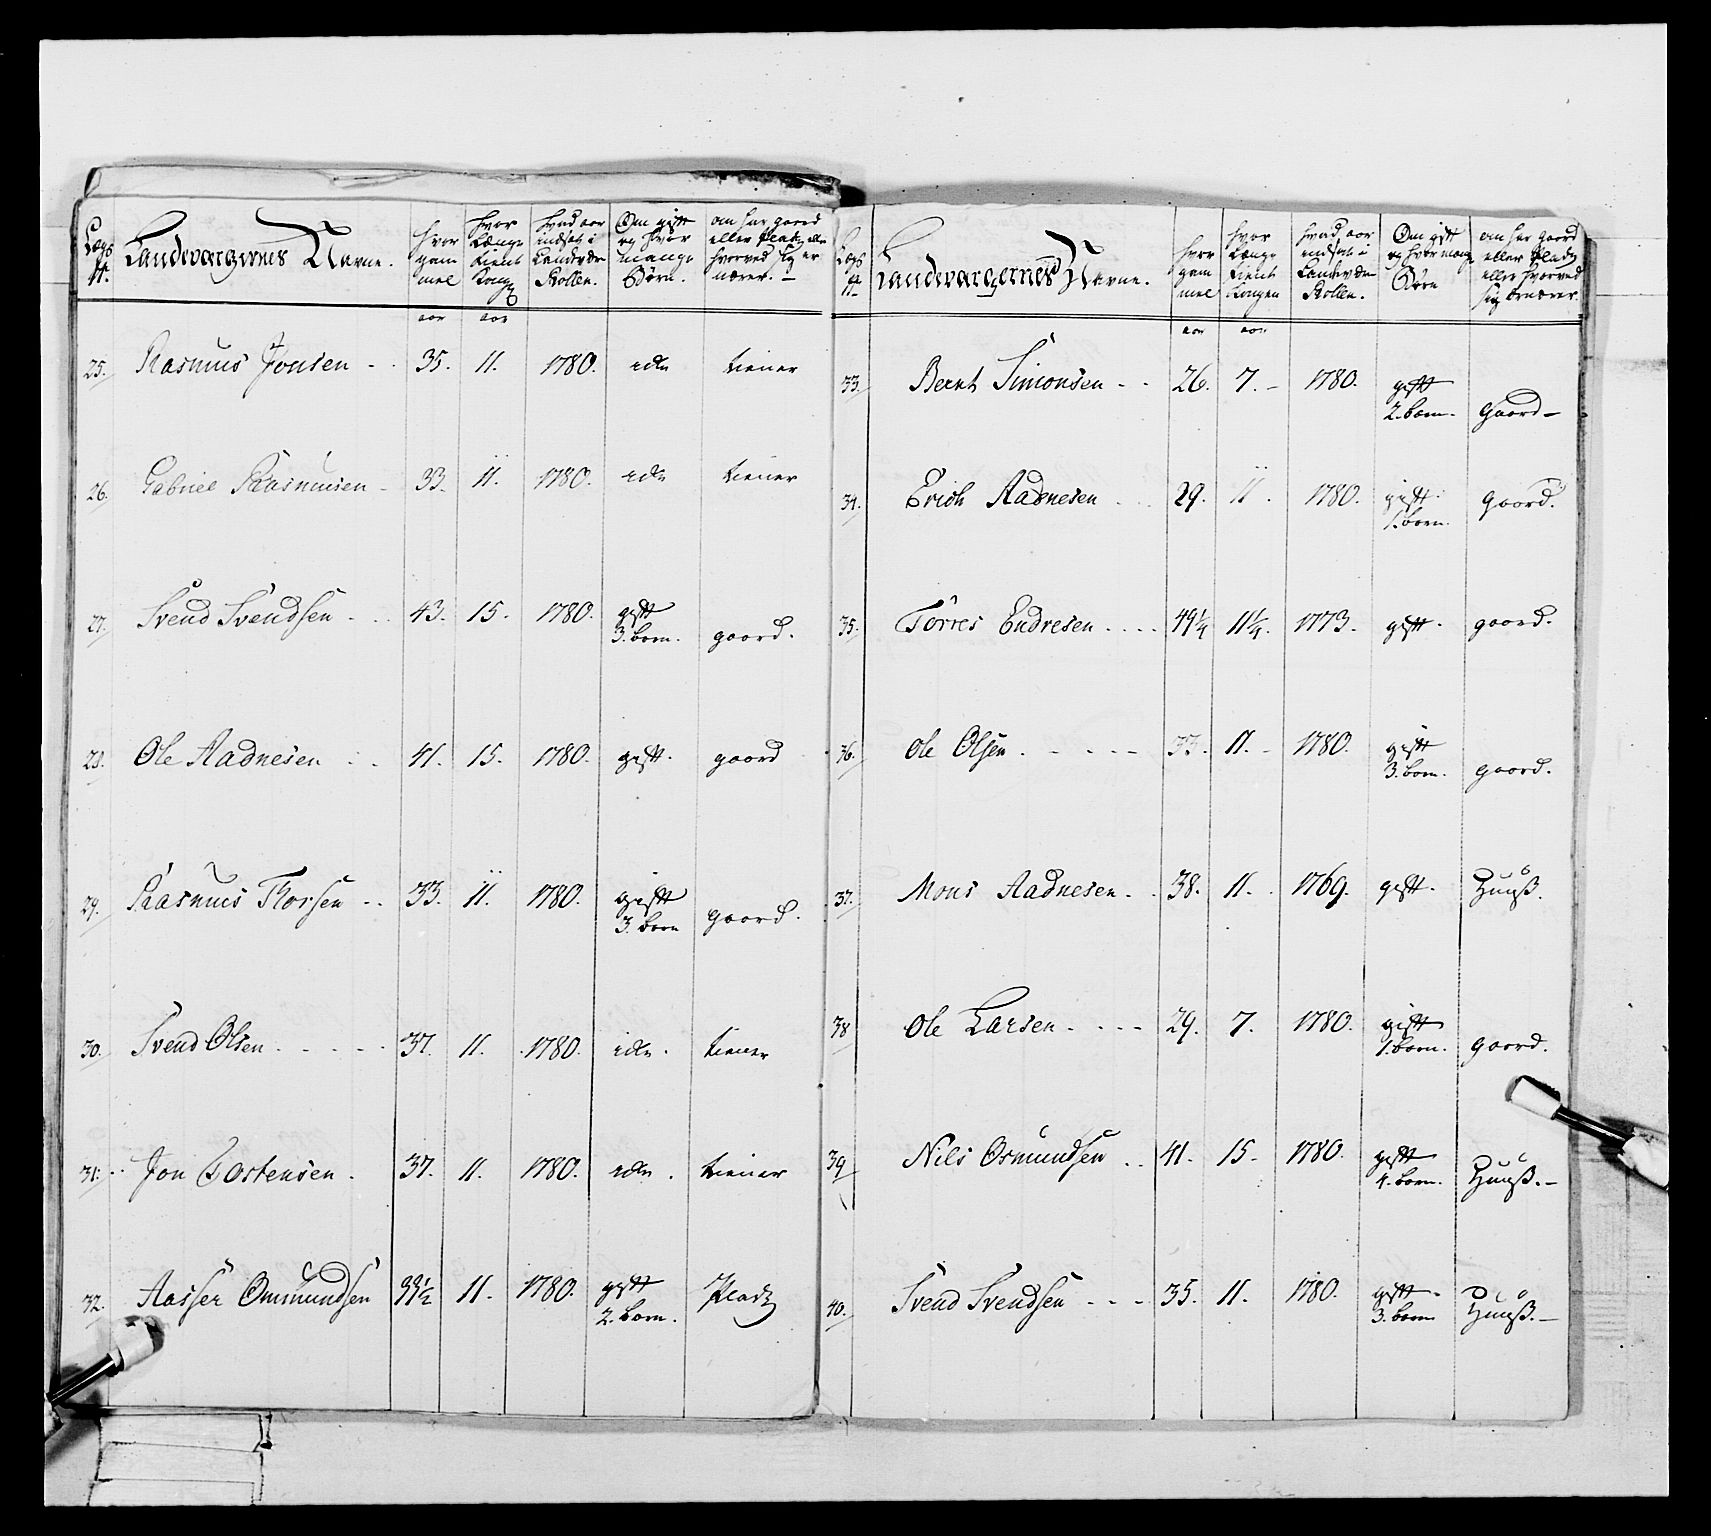 Lægs
№
Landeværgernes Navne.
hvor
gam
mel
hvor
Længe
tient
Kong
hvad aar
indsat i
Landevær
Rollen.
Om gift
og hvor
mange
Børn.
om har gaard
eller Pladz eller
hvorved sig er
nærer. —
aar aar
25. Rasmus Jonsen - . 35. 11. 1780. icke tiener
26. Gabriel Rasmusen - 33. 11. 1780. icke tiener
27. Svend Svendsen . . . 43. 15. 1780. gift
3. børn. gaard.
28. Ole Aadnesen . . 41. 15. 1780. gift. gaard
29. Rasmus Thorsen - . 33. 11. 1780. gift
3. børn gaard.
30. Svend Olsen . - - - . 37. 11. 1780. icke. tiener
31. Jon Tostensen . 37. 11. 1780. icke . tiener
32. Aasser Ommundsen 39½ 11. 1780. gift
2. børn. Pladz
Lægs
№
Landeværgernes Navne.
hvor
gam
mel
hvor
Længe
tient
Kongen
hvad aar
indsat i
Landevær
Rollen.
Om gift
og hvor mange
Børn
om har gaard
eller Pladz
eller hvorved
sig ernærer.
aar aar
33. Bernt Simonsen - - 26. 7. - 1780. gift
2. børn. gaard -
34. Erich Aadnesen . . 29. 11. 1780. gift.
1. børn. gaard.
35. Tørres Endresen . . . . 49¼ 11¼. 1773. gift. gaard.
36. Ole Olsen . - - - - 33. 11. - 1780. gift
3. børn. gaard.
37. Mons Aadnesen . . 38. 11. . 1769. gift. Huuß.
38 Ole Larsen . - - - 29. 7. 1780. gift
1. børn. gaard.
39 Nils Osmundsen . . 41. 15. 1780. gift
4. børn. Huuß. -
40. Svend Svendsen - - - 35. 11. 1780. gift.
3. børn Huuß. -